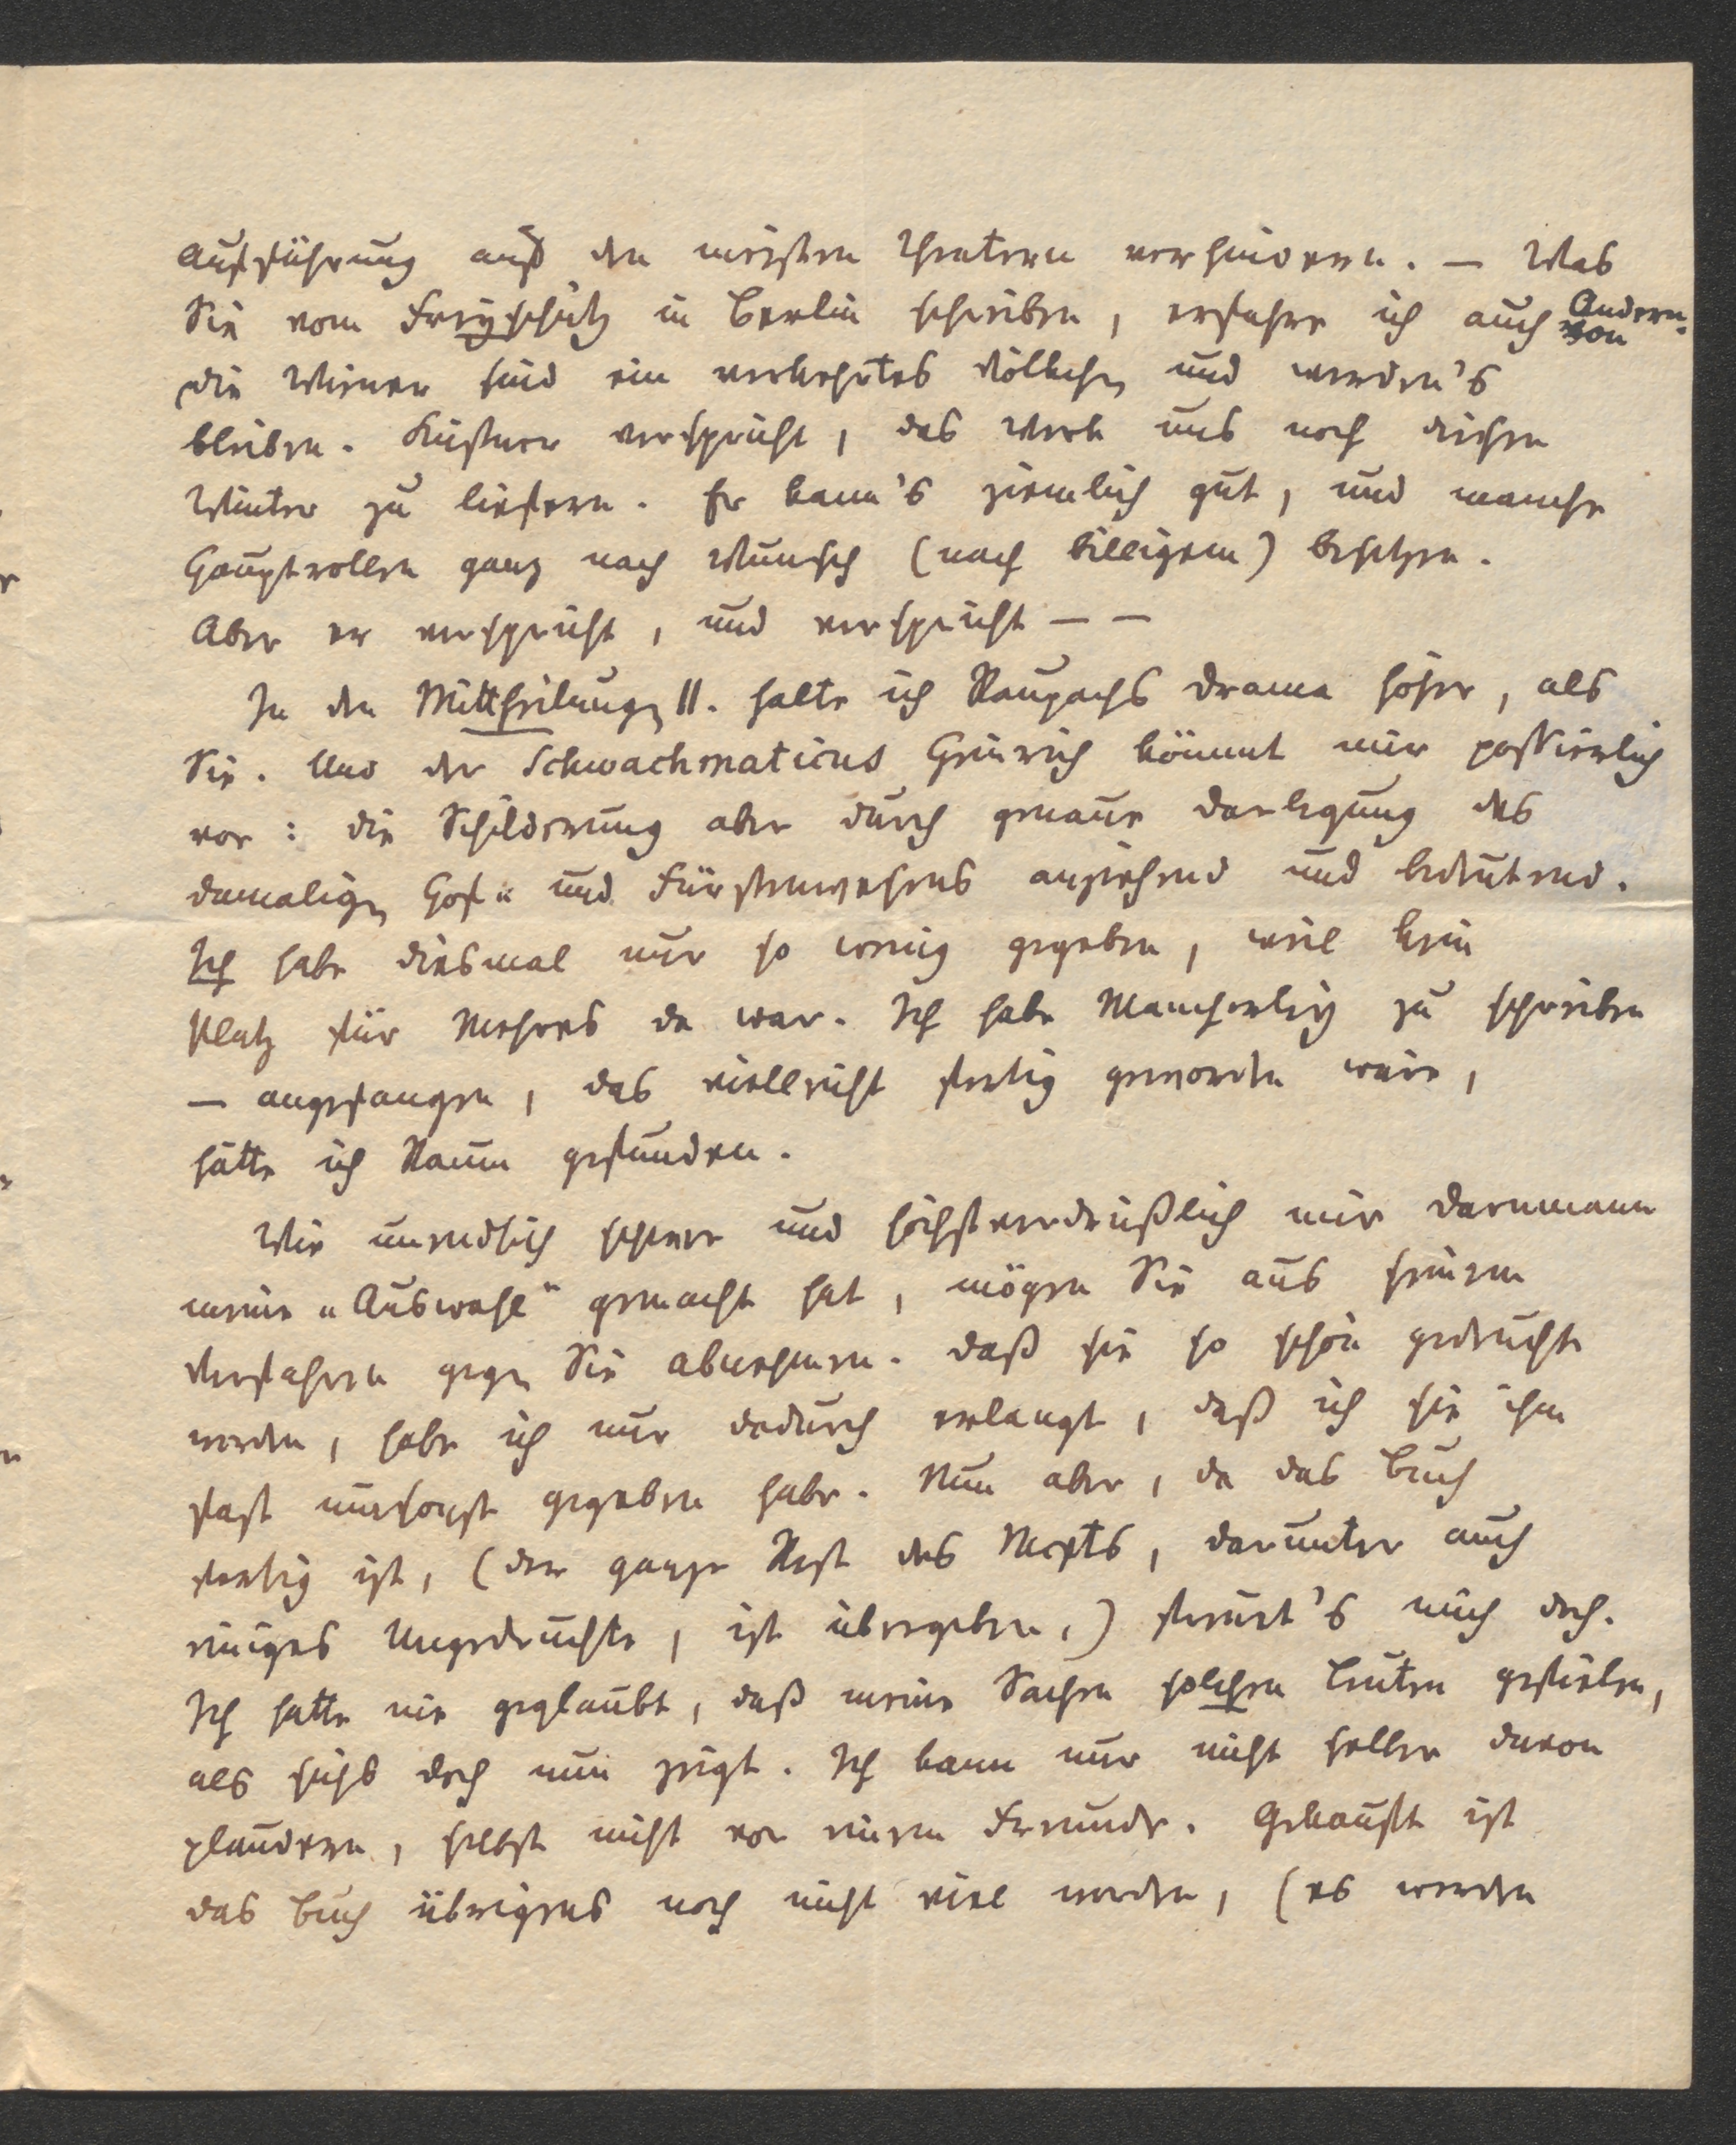 Aufführung auf den meisten Theatern verhindern. — Was
Sie vom Freyschütz in Berlin schreiben, erfahre ich auch von Andern.
Die Wiener sind ein verkehrtes Völkchen und werden's
bleiben. Küstner verspricht, das Werk uns noch diesen
Winter zu liefern. Er kann's ziemlich gut, und manche
Hauptrollen ganz nach Wunsch (nach billigem) besetzen.
Aber er verspricht, und verspricht — —
In den Mittheilungen II. halte ich Raupachs Drama höher, als
Sie. Und der Schwachmaticus Heinrich kömmt mir possierlich
vor: die Schilderung aber durch genaue Darlegung des
damaligen Hof- und Fürstenwesens anziehend und bedeutend.
Ich habe diesmal nur so wenig gegeben, weil kein
Platz für Mehres da war. Ich habe Mancherley zu schreiben
— angefangen, das vielleicht fertig geworden wäre,
hätte ich Raum gefunden.
Wie unendlich schwer und höchstverdrüßlich mir Darnmann
meine „Auswahl" gemacht hat, mögen Sie aus seinem
Verfahren gegen Sie abnehmen. Daß sie so schön gedruckt
worden, habe ich nur dadurch erlangt, daß ich sie ihm
fast umsonst gegeben habe. Nun aber, da das Buch
fertig ist, (der ganze Rest des Mcpts, darunter auch
einiges Ungedruckte, ist übergeben,) freuet's mich doch.
Ich hatte nie geglaubt, daß meine Sachen solchen Leuten gefielen,
als sichs doch nun zeigt. Ich kann nur nicht selber davon
plaudern, selbst nicht vor einem Freunde. Gekauft ist
das Buch übrigens noch nicht viel worden, (es werden